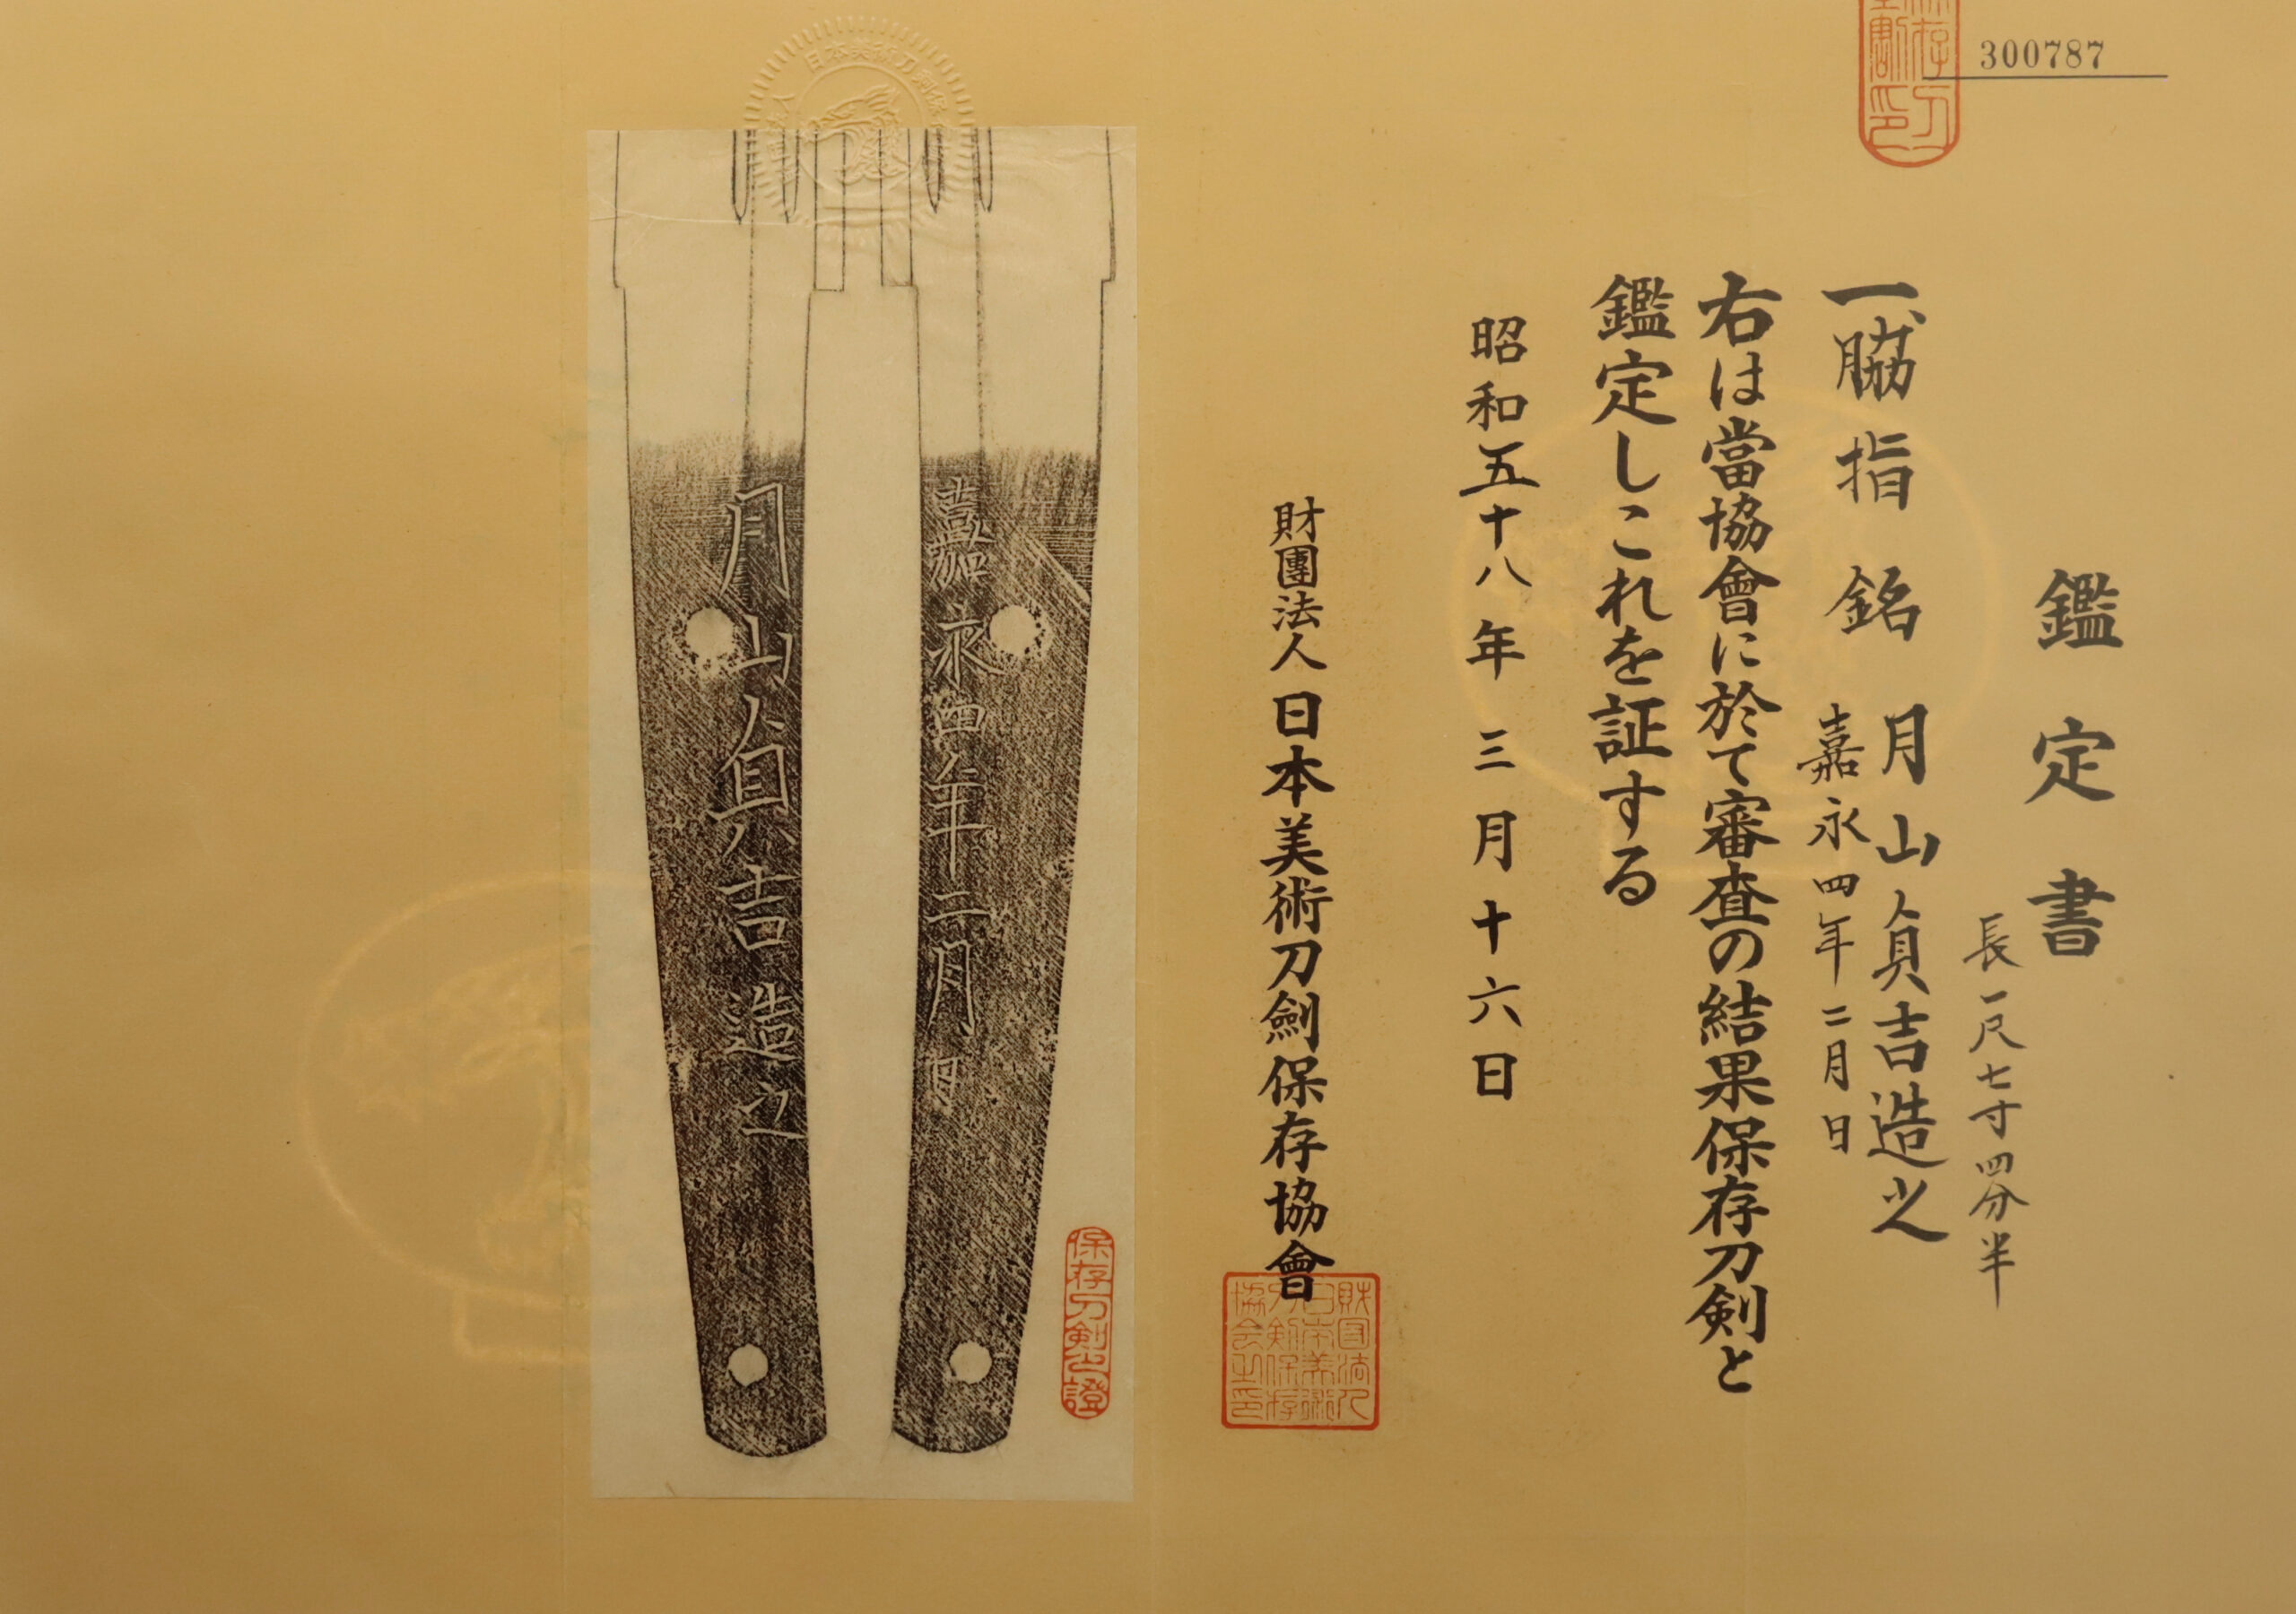 300787
鑑定書
長一尺七寸四分半
一、脇指 銘 月山貞吉造之
嘉永四年二月日
右は當協會に於て審査の結果保存刀剣と
鑑定しこれを証する
昭和五十八年三月十六日
財團法人日本美術刀劍保存協會
嘉永四年二月日
月山貞吉造之
保存刀剣之證